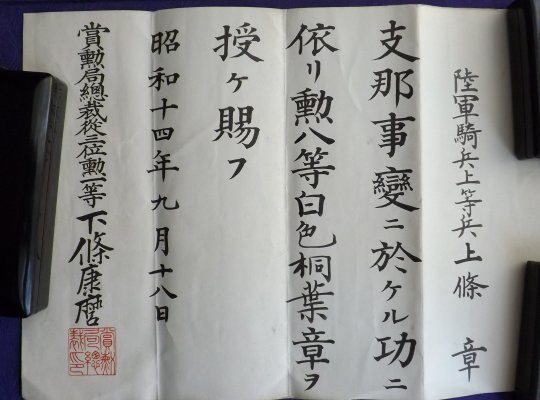 陸軍騎兵上等兵上條章
支那事變ニ於ケル功ニ
依リ勲八等白色桐葉章ヲ
授ケ賜フ
昭和十四年九月十八日
賞勲局總裁從三位勲一等下條康麿
賞勲局總裁印